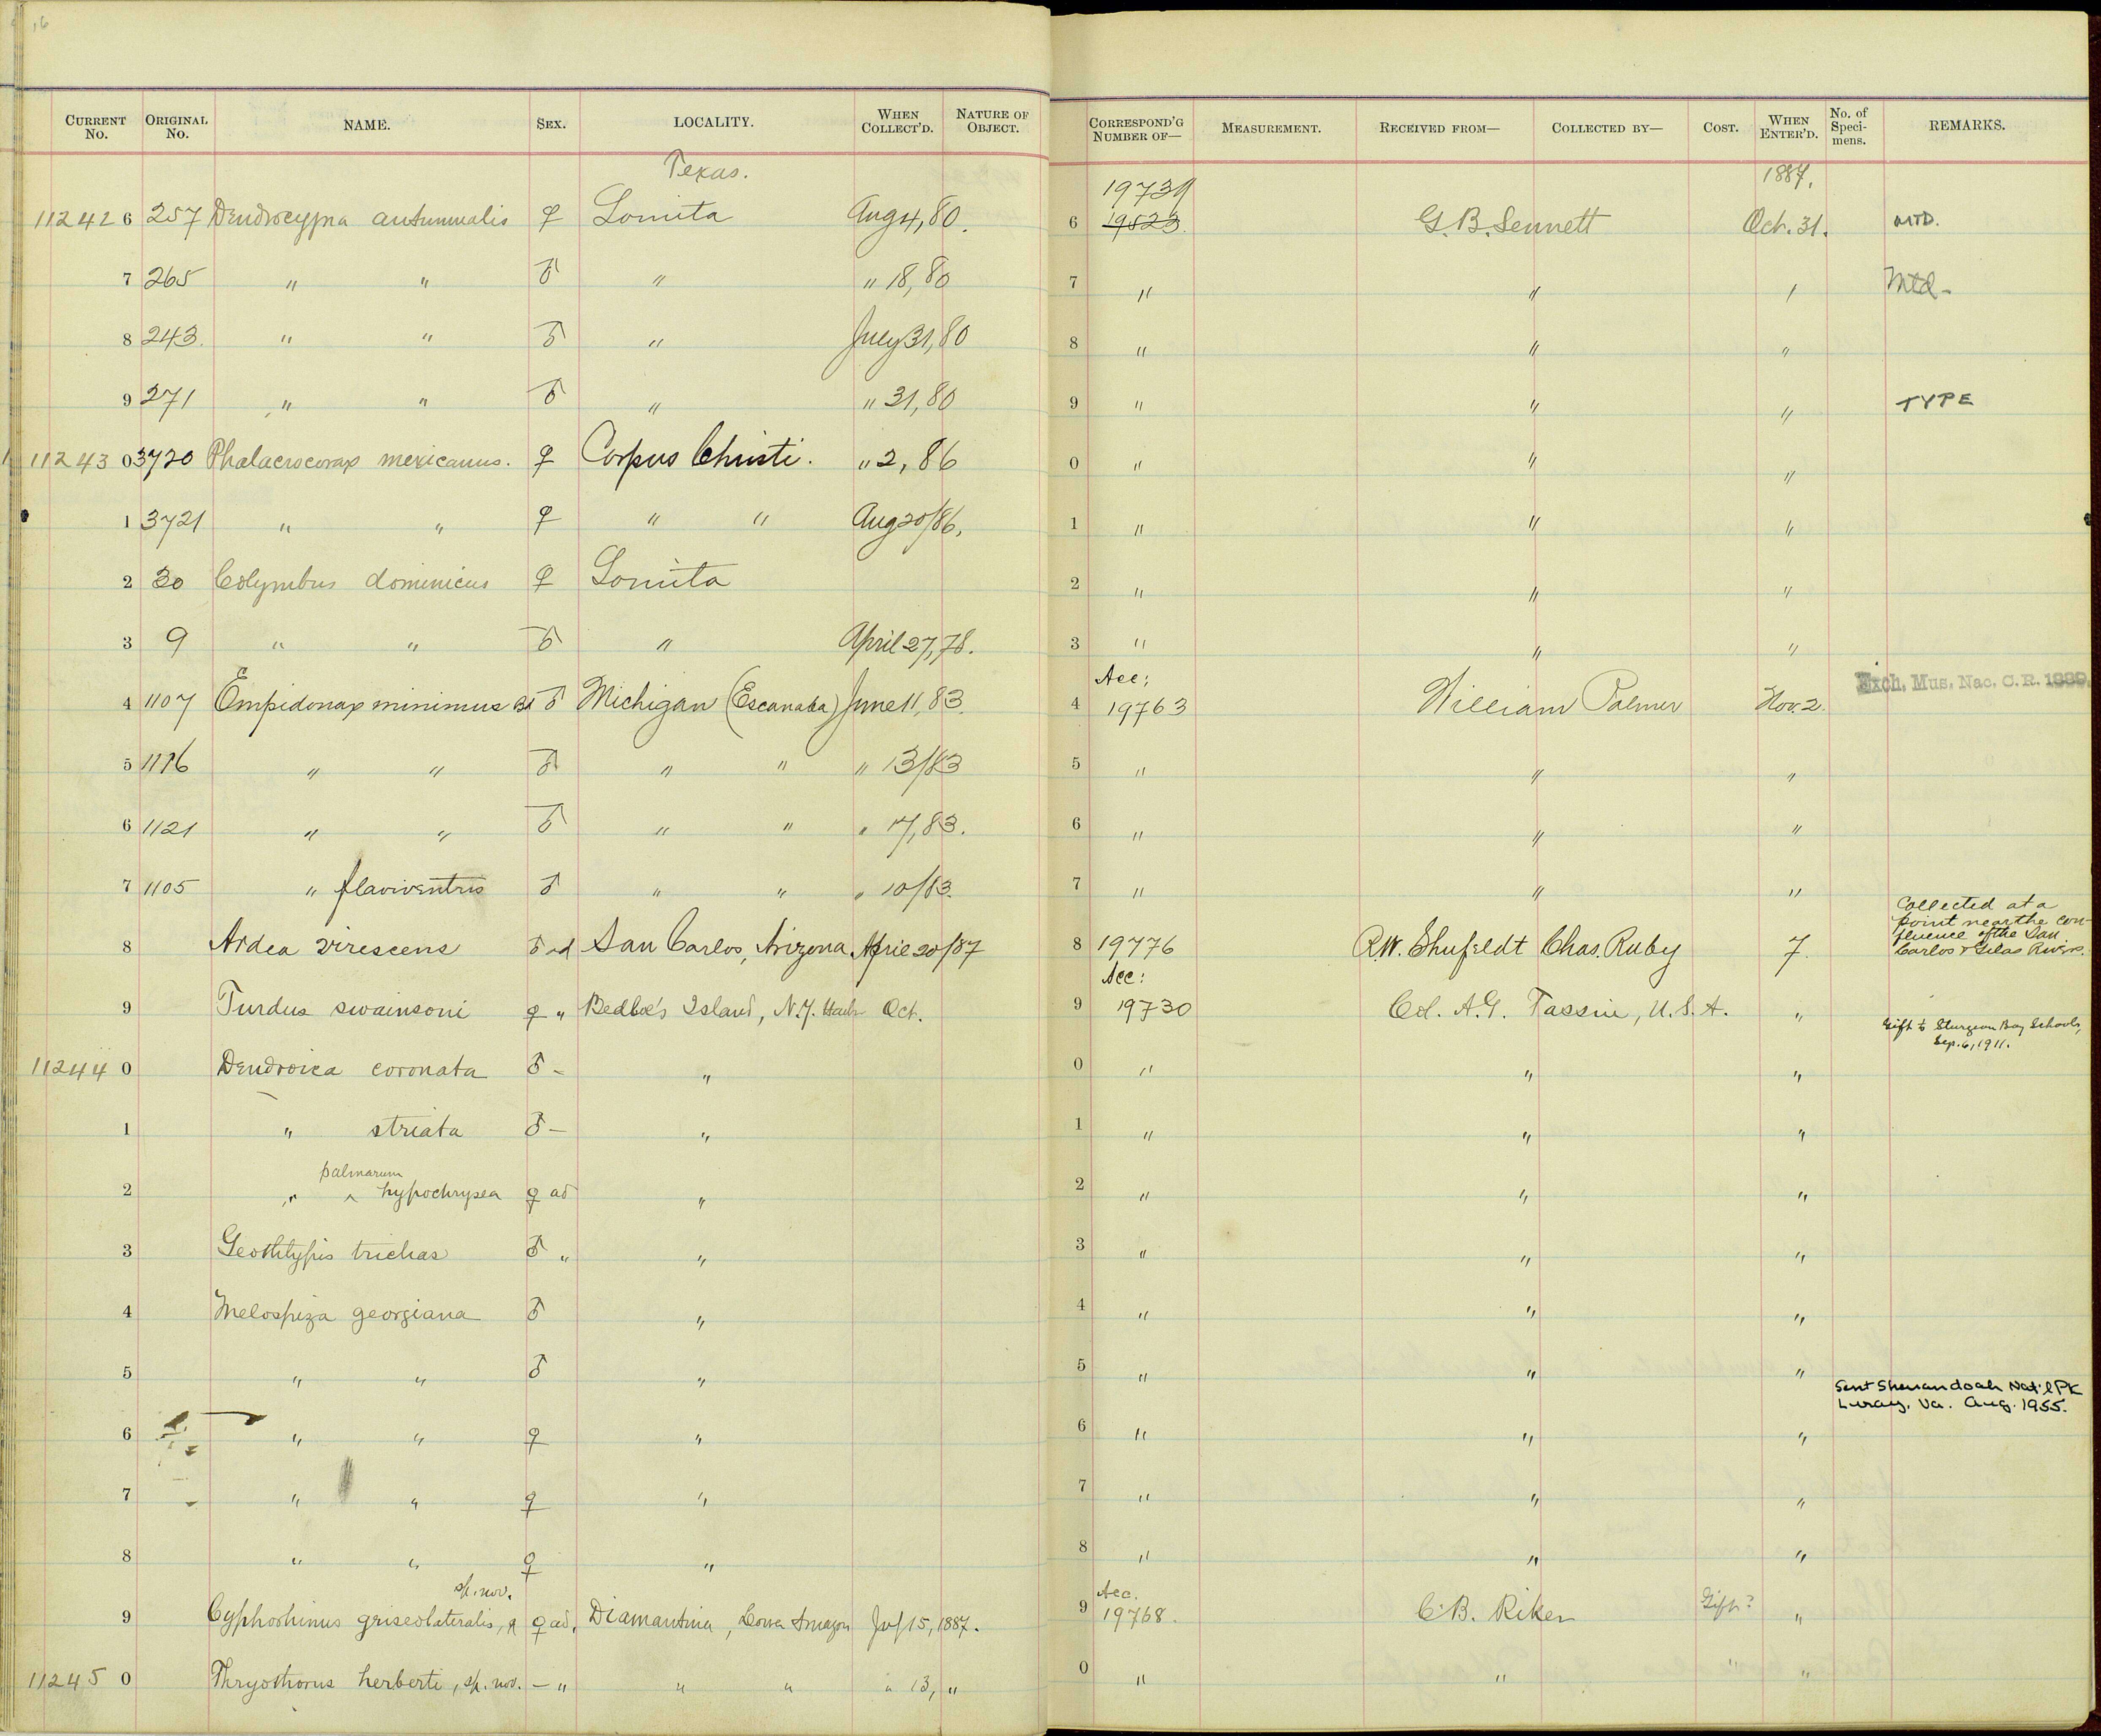 16
CURRENT No. ORIGINAL No. NAME. SEX. LOCALITY. WHEN COLLECT'D. NATURE OF OBJECT. CORRESPOND'G NUMBER OF— MEASUREMENT. RECEIVED FROM— COLLECTED BY— COST. WHEN ENTER'D. No. of Speci-mens. REMARKS.
Texas. 19739 1887.
11242 6 257 Dendrocygna autumnalis ♀ Lomita Aug 4, 80. 6 19523. G. B. Sennett Oct. 31. MTD.
7 265 " " ♂ " " 18, 80 7 " " " Mtd-
8 243. " " ♂ " July 31, 80 8 " " "
9 271 " " ♂ " " 31, 80 9 " " " TYPE
11243 0 3720 Phalacrocorax mexicanus. ♀ Corpus Christi. " 2, 86 0 " " "
1 3721 " " ♀ " " Aug 20/86. 1 " " "
2 30 Colymbus dominicus ♀ Lomita 2 " " "
3 9 " " ♂ " April 27, 78. 3 " " "
Acc:
4 1107 Empidonax minimus Bd ♂ Michigan (Escanaba) June 11, 83. 4 19763 William Palmer Nov. 2. Exch. Mus. Nac. C. R. 1889.
5 1116 " " ♂ " " " 13/83 5 " " "
6 1121 " " ♂ " " " 17, 83. 6 " " "
7 1105 " flaviventris ♂ " " " 10/83. 7 " " "
8 Ardea virescens ♂ ad San Carlos, Arizona. April 20/87 8 19776 R.W. Shufeldt Chas. Ruby 7. Collected at a
point near the con-
fluence of the San
Carlos & Gilas Rivers.
Acc:
9 Turdus swainsoni ♀ " Bedloe's Island, N.Y. Harbr Oct. 9 19730 Col. A. G. Tassin, U.S.A. "
Gift to Sturgeon Bay Schools,
Sep. 6, 1911.
11244 0 Dendroica coronata ♂ - " 0 " " "
1 " striata ♂ - " 1 " " "
palmarum
2 " ^ hypochrysea ♀ ad " 2 " " "
3 Geothlypis trichas ♂ " " 3 " " "
4 Melospiza georgiana ♂ " 4 " " "
5 " " ♂ " 5 " " "
Sent Shenandoah Nat'l PK
Luray, Va. Aug. 1955.
6 " " ♀ " 6 " " "
7 " " ♀ " 7 " " "
8 " " ♀ " 8 " " "
sp. nov. Acc.
9 Cyphorhinus griseolateralis, ♀ ad. Diamantina, Lower Amazon July 15, 1887. 9 19768. C. B. Riker Gift? "
11245 0 Thryothorus herberti, sp. nov. - " " " " 13, " 0 " " " "